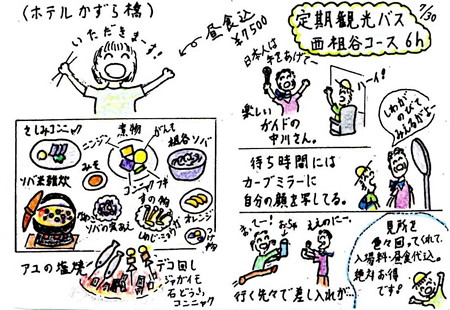 (ホテルかずら橋)
いただきまーす!
昼食込
¥7500
さしみコンニャク
ニンジン
煮物
がんも
祖谷ソバ
みそ
コンニャク
すの物
ソバ米雑炊
ソバの実あえ
オレンジ
アユの塩焼
デコ回し
ジャガイモ
石どうふ
コンニャク
7/30
定期観光バス
西祖谷コース 6h
日本人は
手をあげてー
ハーイ!
楽しい
ガイドの
中川さん。
しわが
のびて
みえるがよー
待ち時間には
カーブミラーに
自分の顔を写してる。
まってー!
おちゃ
ええのにー。
行く先々で差し入れが…
見所を
色々回ってくれて、
入場料・昼食代込。
絶対お得
です!